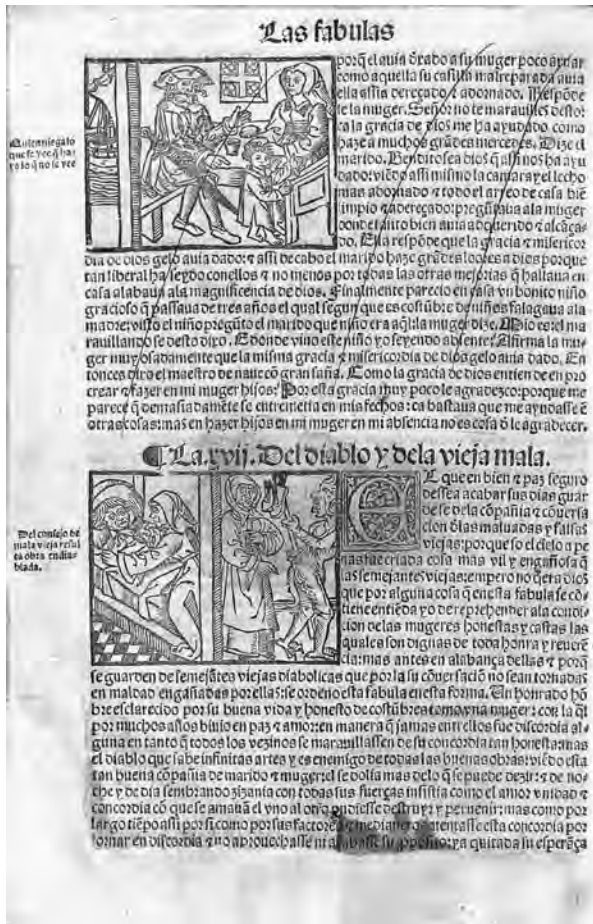 Las fabulas
porq̃ el auia d̃xado a su muger poco axuar
como aquella su casilla mal reparada auia
ella assi adereçado ⁊ adornado. Respõde
le la muger. Señor no te marauilles desto:
ca la gracia de dios me ha ayudado como
haze a muchos grãdes mercedes. Dize el
marido. Bendito sea dios q̃ assi nos ha ayu
dado: viẽdo assi mismo la camara y el lecho
mas adornado ⁊ todo el arreo de casa biẽ
limpio ⁊ adereçado: pregũtaua ala muger
donde tãto bien auia adquerido ⁊ alcãça-
do. Ella respõde que la gracia ⁊ misericor
dia de dios gelo auia dado: ⁊ assi de cabo el marido haze grãdes loores a dios porque
tan liberal ha seydo conellos ⁊ no menos por todas las otras mejorias q̃ hallaua en
casa alabaua ala magnificencia de dios. Finalmente parecio en casa vn bonito niño
gracioso q̃ passaua de tres años el qual segun que es costũbre de niños falagaua ala
madre: visto el niño pregũto el marido que niño era aq̃l: la muger dize. Mio es: el ma
rauillando se desto dixo. E donde vino este niño yo seyendo absente? Afirma la mu
ger muy osadamente que la misma gracia ⁊ misericordia de dios gelo auia dado. En
tonces dixo el maestro de naue cõ gran saña. Como la gracia de dios entien de en pro
crear ⁊ fazer en mi muger hijos? Por esta gracia muy poco le agradezco: porque me
parece q̃ demasiadamẽte se entremetia en mis fechos: ca bastaua que me ayudasse ẽ
otras cosas: mas en hazer hijos en mi muger en mi absencia no es cosa d̃ le agradecer.
Quien niega lo
que se vee q̃ ha
ra lo q̃ no se vee
¶ La .xvij. Del diablo y dela vieja mala.
El que en bien ⁊ paz seguro
dessea acabar sus dias guar
de se dela cõpañia ⁊ cõuersa
cion d̃las maluadas y falsas
viejas: porque so el cielo ape
nas fue criada cosa mas vil y engañosa q̃
las semejantes viejas: empero no q̃era dios
que por alguna cosa q̃ enesta fabula se cõ-
tiene entiẽda yo de reprehender ala condi-
cion delas mugeres honestas y castas las
quales son dignas de toda honra y reuerẽ
cia: mas antes en alabança dellas ⁊ porq̃
se guarden de semejãtes viejas diabolicas que por la su cõuersaciõ no sean tornadas
en maldad engañadas por ellas: se ordeno esta fabula enesta forma. Un honrado hõ
bre esclarecido por su buena vida y honesto de costũbres tomo vna muger: con la q̃l
por muchos años biuio en paz ⁊ amor: en manera q̃ jamas entrellos fue discordia al-
guna en tanto q̃ todos los vezinos se marauillassen de su concordia tan honesta: mas
el diablo que sabe infinitas artes y es enemigo de todas las buenas obras: viẽdo esta
tan buena cõpañia de marido ⁊ muger: el se dolia mas delo q̃ se puede dezir: ⁊ de no-
che y de dia sembrando zizania con todas sus fuerças insistia como el amor vnidad ⁊
concordia cõ que se amauã el vno al otro pudiesse destruyr y peruenir: mas como por
largo tiẽpo assi por si como por sus factores ⁊ medianeros atentasse esta concordia por
tornar en discordia ⁊ no aprouechasse ni su proposito: ya quitada su esperãça
Del consejo de
mala vieja resul
ta obra endia-
blada.